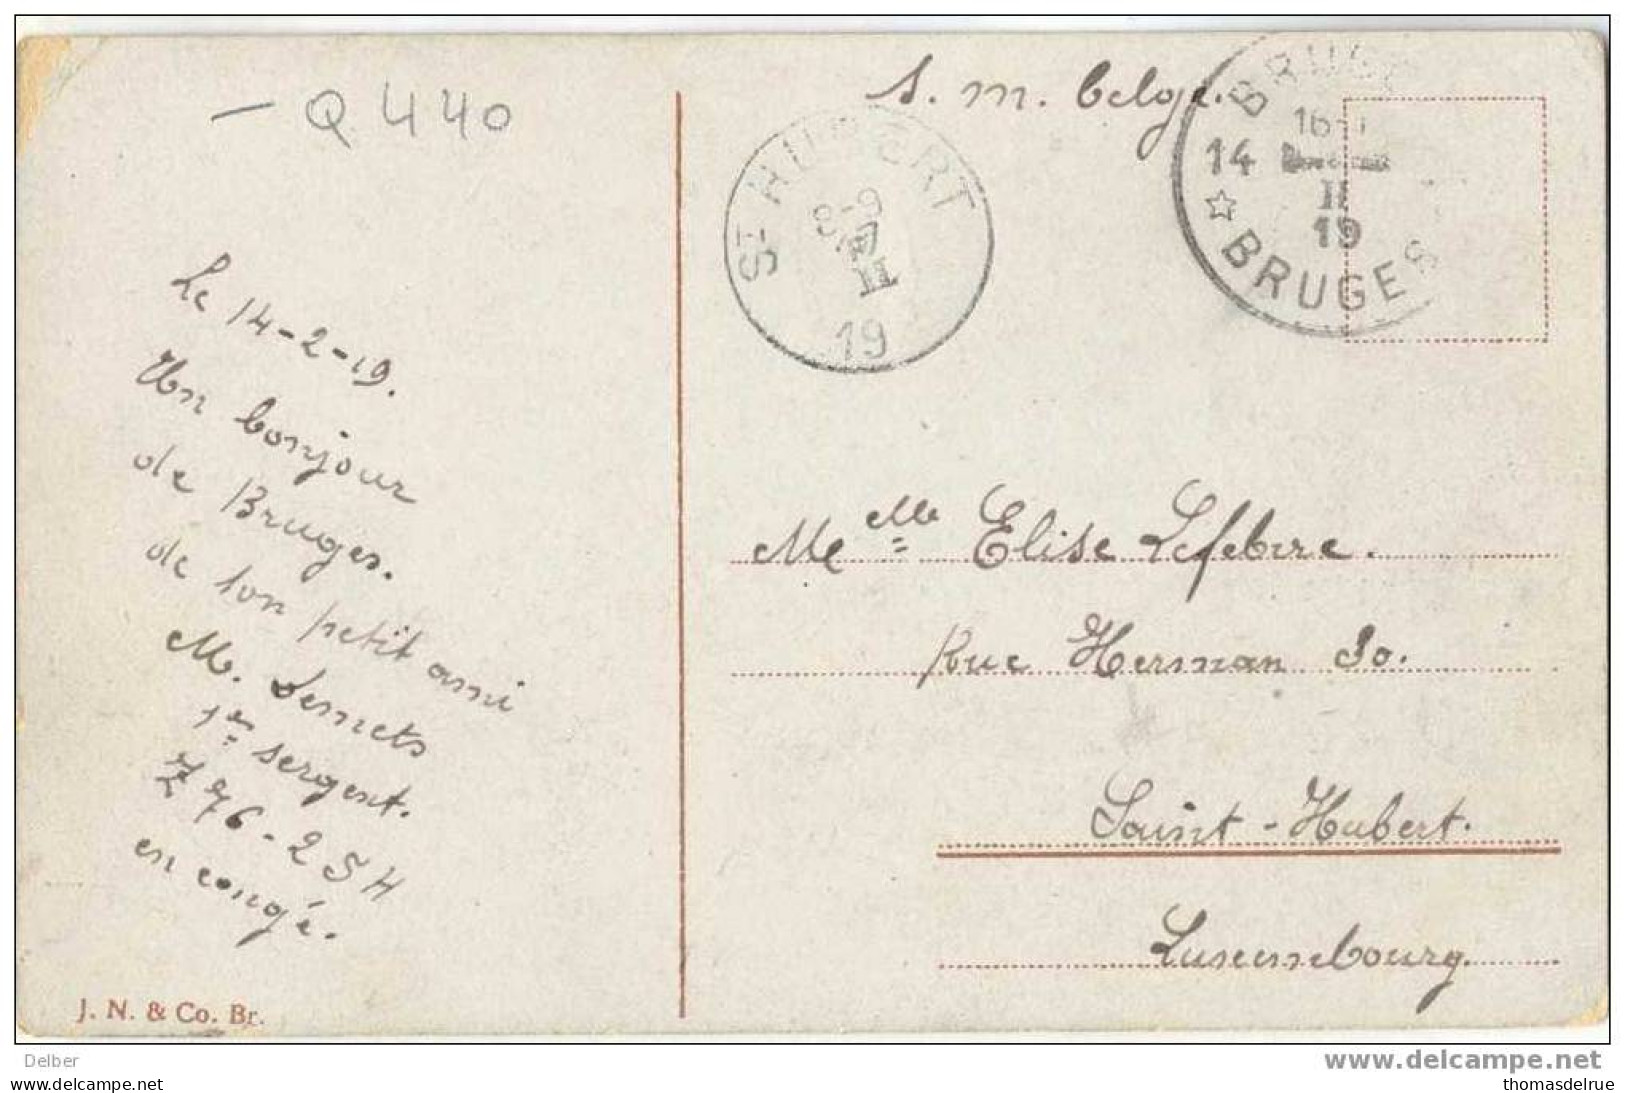 - Q 440
S. M. belge.
BRUGGE
16-1
14
II
19
BRUGES
ST HUBERT
8-9
17
II
19
Le 14-2-19.
Un bonjour
de Bruges.
de ton petit ami
M. Semets
1er sergent.
Z 76 - 2 S H
en congé.
Melle Elise Lefebvre.
Rue Herman 30.
Saint-Hubert.
Luxembourg.
J. N. & Co. Br.
Delber
www.delcampe.net
https://www.delcampe.net
thomasdelrue